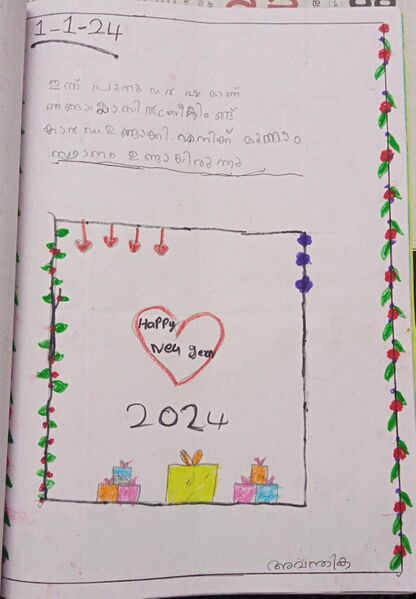 1-1-24
ഇന്ന് പുതുവർഷമാണ്
ഞങ്ങൾ ക്ലാസിൽ
കാർഡ് ഉണ്ടാക്കി. എനിക്ക് മൂന്നാം
സ്ഥാനം ഉണ്ടായിരുന്നു
Happy
New year
2024
അവന്തിക